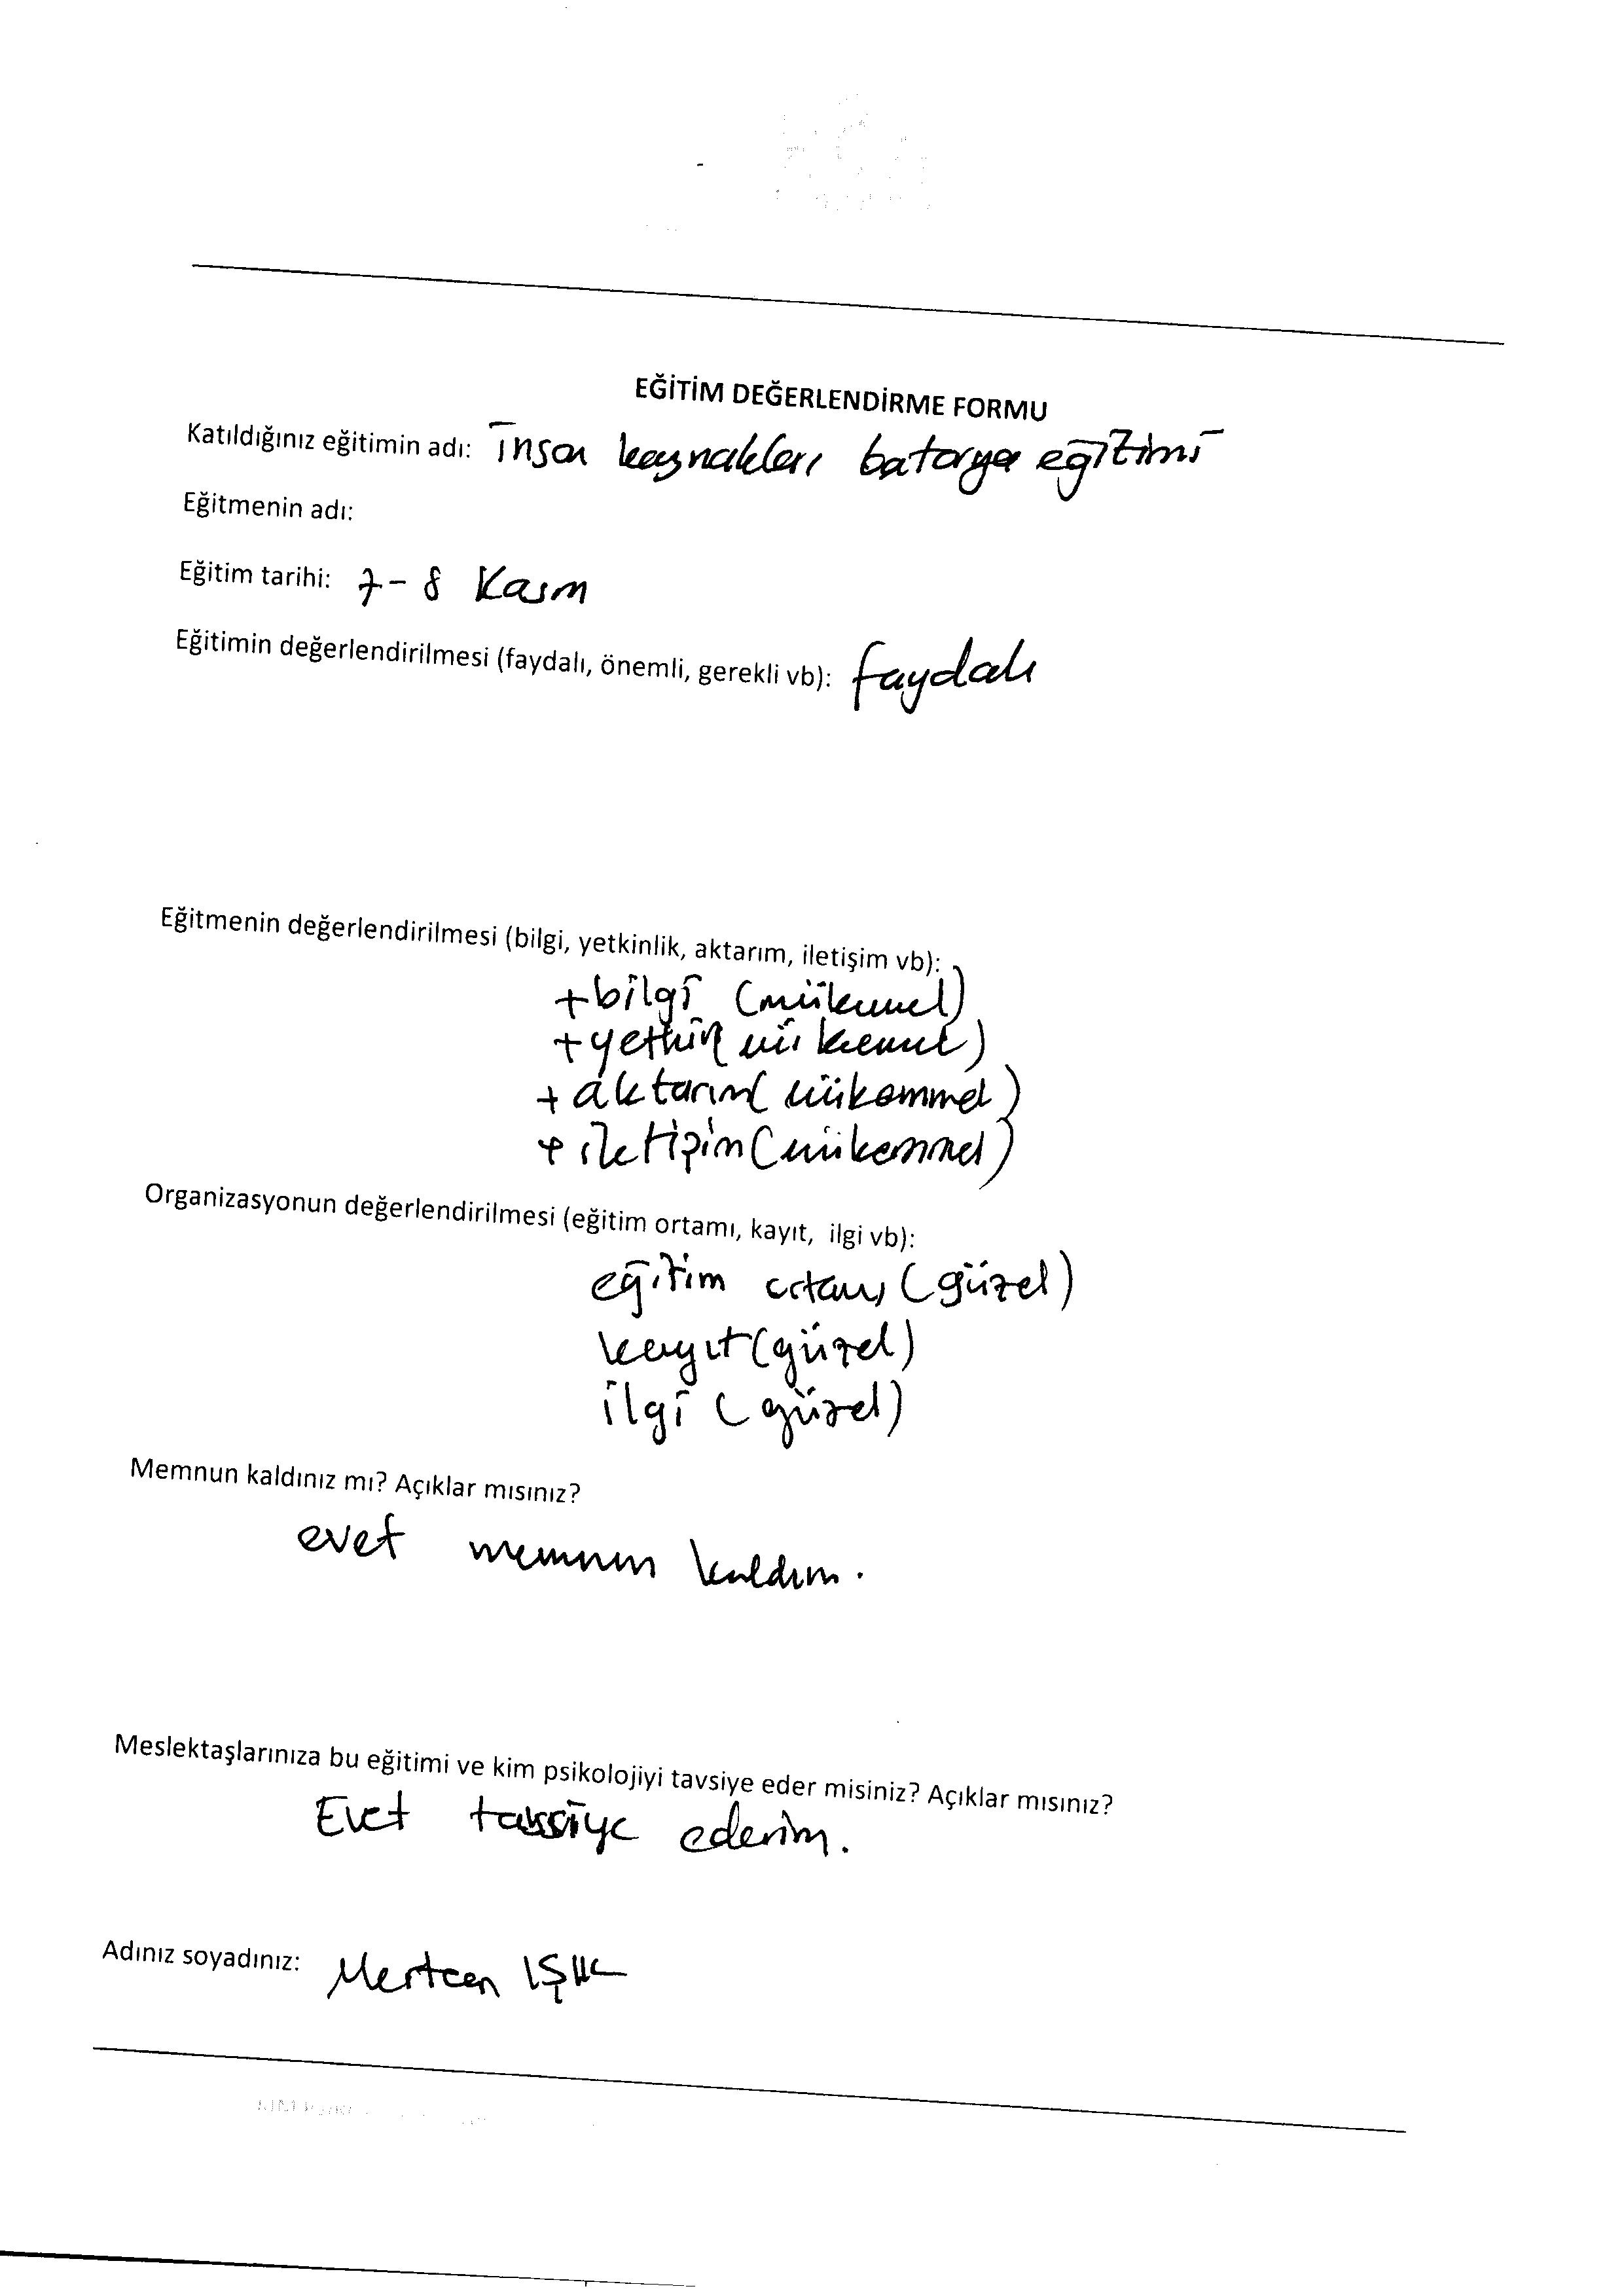 EĞİTİM DEĞERLENDİRME FORMU
Katıldığınız eğitimin adı: insan kaynakları batarya eğitimi
Eğitmenin adı:
Eğitim tarihi: 7-8 Kasım
Eğitimin değerlendirilmesi (faydalı, önemli, gerekli vb): faydalı
Eğitmenin değerlendirilmesi (bilgi, yetkinlik, aktarım, iletişim vb):
+bilgi (mükemmel)
+yetkin( mükemmel)
+ aktarım( mükemmel)
+ iletişim(mükemmel)
Organizasyonun değerlendirilmesi (eğitim ortamı, kayıt, ilgi vb):
eğitim ortamı (güzel)
kayıt(güzel)
ilgi (güzel)
Memnun kaldınız mı? Açıklar mısınız?
evet memnun kaldım.
Meslektaşlarınıza bu eğitimi ve kim psikolojiyi tavsiye eder misiniz? Açıklar mısınız?
Evet tavsiye ederim.
Adınız soyadınız: Mertcan IŞIK